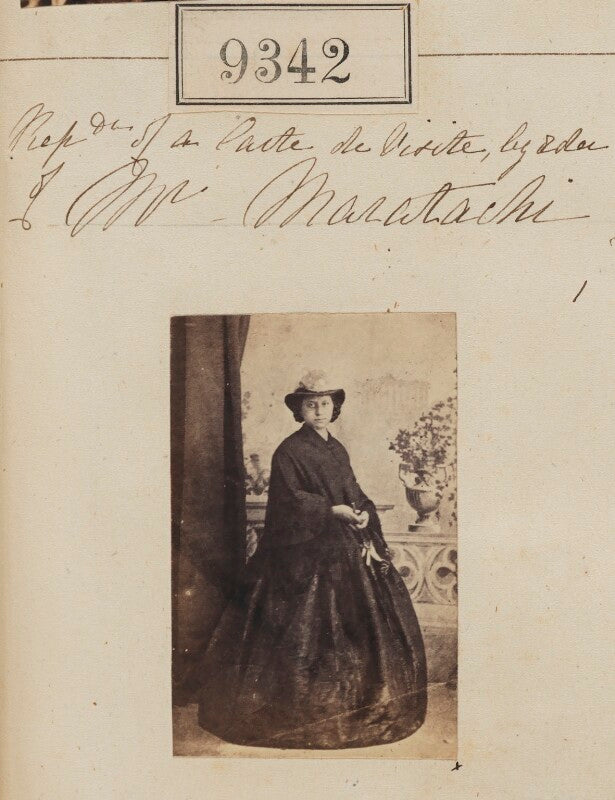 9342
Rep.dn of a Carte de Visite, by order
of Mr. Maratachi